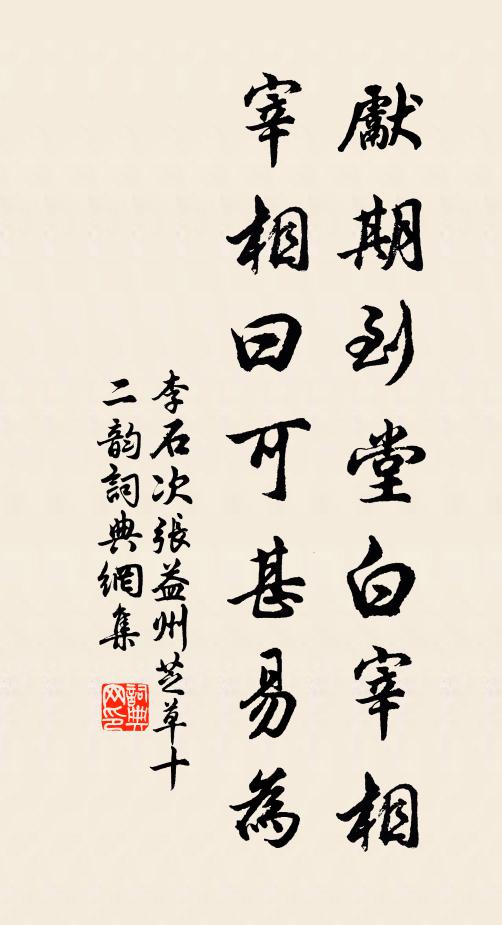 獻期到堂白宰相
宰相曰可甚易為
李石次張益州芝草十
二韵詞典網集
詞典網印